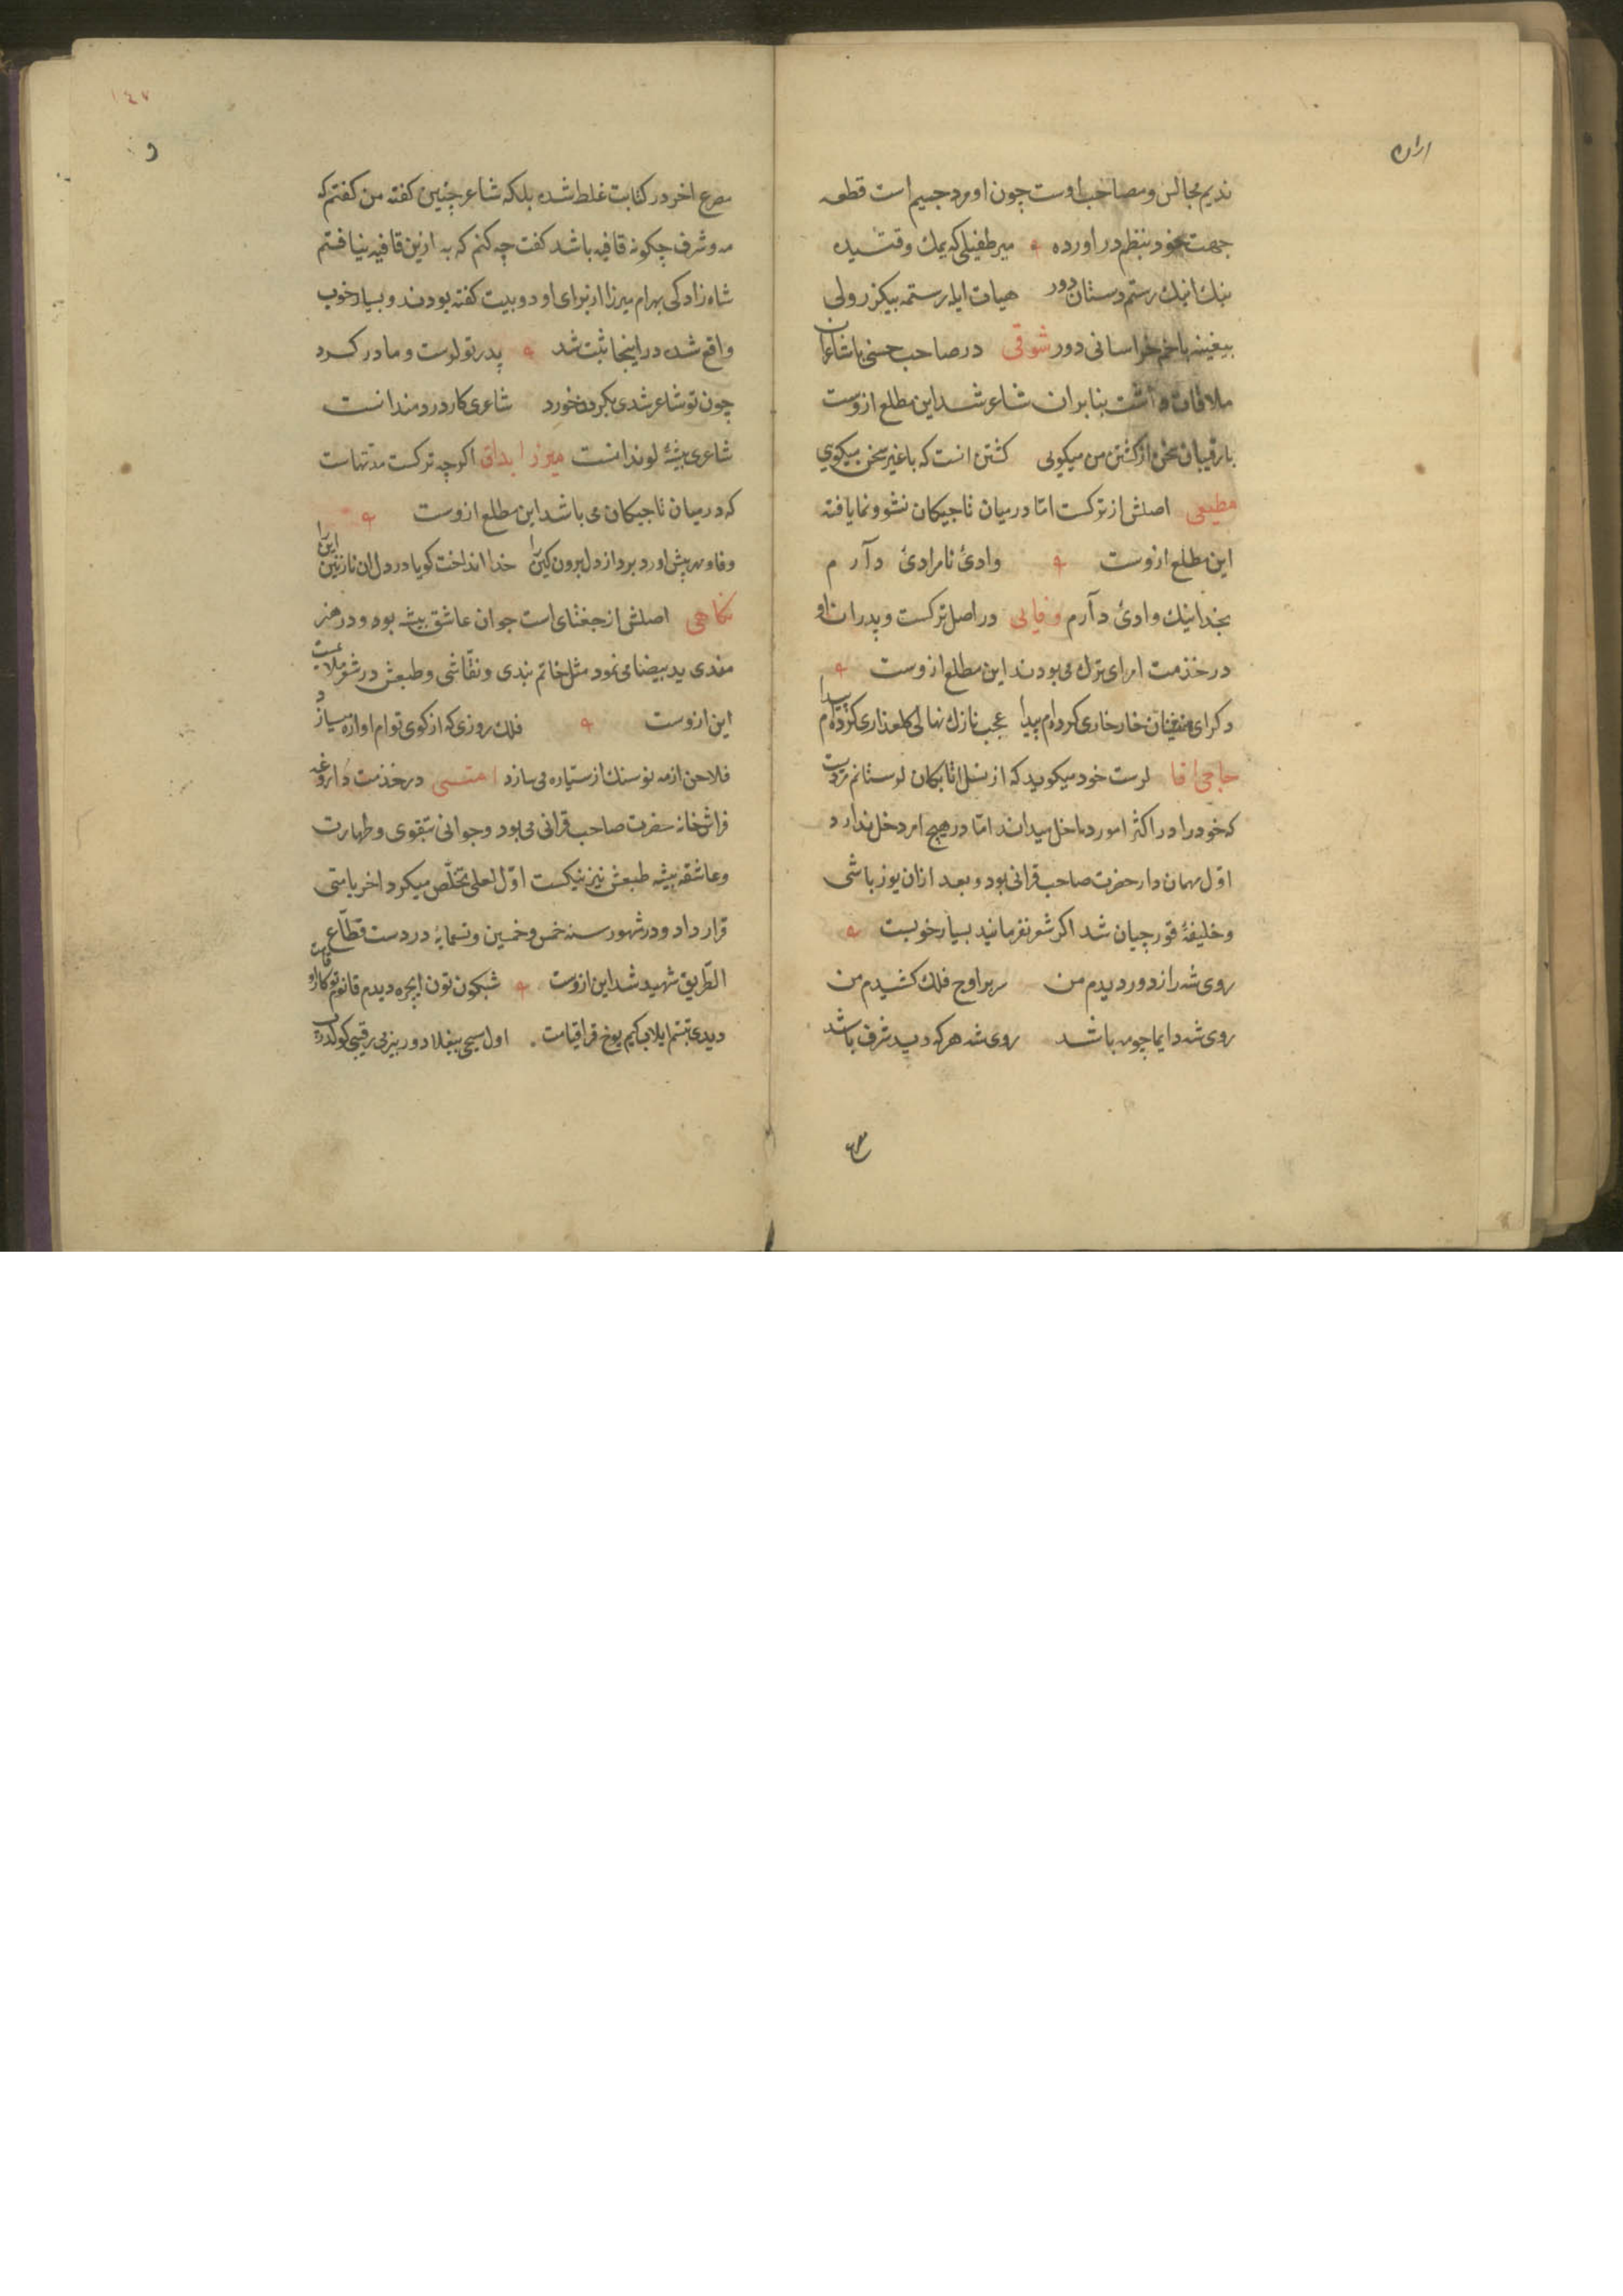 ندیم مجالس و مصاحب اوست چون او مرد جسیم است قطعه
جهت خود بنظم در اورده میر طفیلی که یمك وقتیده
بنك انیك رستم دستان دور هیات ایله رستمه بیکزر ولی
بیغینه باخم خراسانی دور شوقی در صاحب حسنی با شاعران
ملاقات داشت بنابران شاعر شد این مطلع ازوست
با رقیبان سخن از کشتن من میکویی کشتن انست که با غیر سخن میکویی
مطیعی اصلش از ترکست امّا در میان تاجیکان نشو و نما یافته
این مطلع ازوست وادئ نامرادئ دآرم
بخدا نیك وادئ دآرم وفایی در اصل ترکست و پدران او
در خذمت امرای ترك می بودند این مطلع ازوست
دکر ای همنشینان خار خاری کرده ام پیدا عجب نازك نهالی کلعذاری کرده ام پیدا
حاجی اقا لرست خود میکوید که از نسل اتابکان لرستانم مردیست
که خود را در اکثر امور داخل میداند امّا در هیچ امر دخل ندارد
اوّل مهمان دار حضرت صاحب قرانی بود و بعد ازان یوز باشی
و خلیفهٔ قورچیان شد اکر شعر نفرمانید بسیار خوبست
روی شه را از دور دیدم من سر بر اوج فلك کشیدم من
روی شه دایما چو مه باشد روی شه هر که دید شرف باشد
١٤٧
مصرع اخر در کتابت غلط شده بلکه شاعر چنین کفته من کفتم که
مه و شرف چکونه قافیه باشد کفت چه کنم که به ازین قافیه نیافتم
شاه زادکی بهرام میرزا از برای او دو بیت کفته بودند و بسیار خوب
واقع شده در اینجا ثبت شد پدر تو لرست و مادر کرد
چون تو شاعر شدی بکرد خورد شاعری کار دردمندانست
شاعری پیشهٔ لوندانست میرزا بداق اکرچه ترکست مدتهاست
که در میان تاجیکان می باشد این مطلع ازوست
وفا و مهر پیش اورد برد از دل برون کین را خدا انداخت کویا در دل ان نازنین این را
نکاهی اصلش از جغتای است جوان عاشق پیشه بود و در هنر
مندی ید بیضا می نمود مثل خاتم بندی و نقّاشی و طبعش در شعر ملایمست
این ازوست فلك روزی که از کوی تو ام اواره میسازد
فلاخن از مه نو سنك از سیّاره می سازد در خذمت داروغه
فراش خانه حضرت صاحب قرانی می بود و جوانی بتقوی و طهارت
و عاشقه پیشه طبعش نیز نیکست اوّل لعلی تخلّص میکرد اخر باین
قرار داد و در شهور سنه خمس و خمسین و تسمایه در دست قطّاع
الطّریق شهید شد این ازوست شبکون تون ایچره دیدم
دیدی